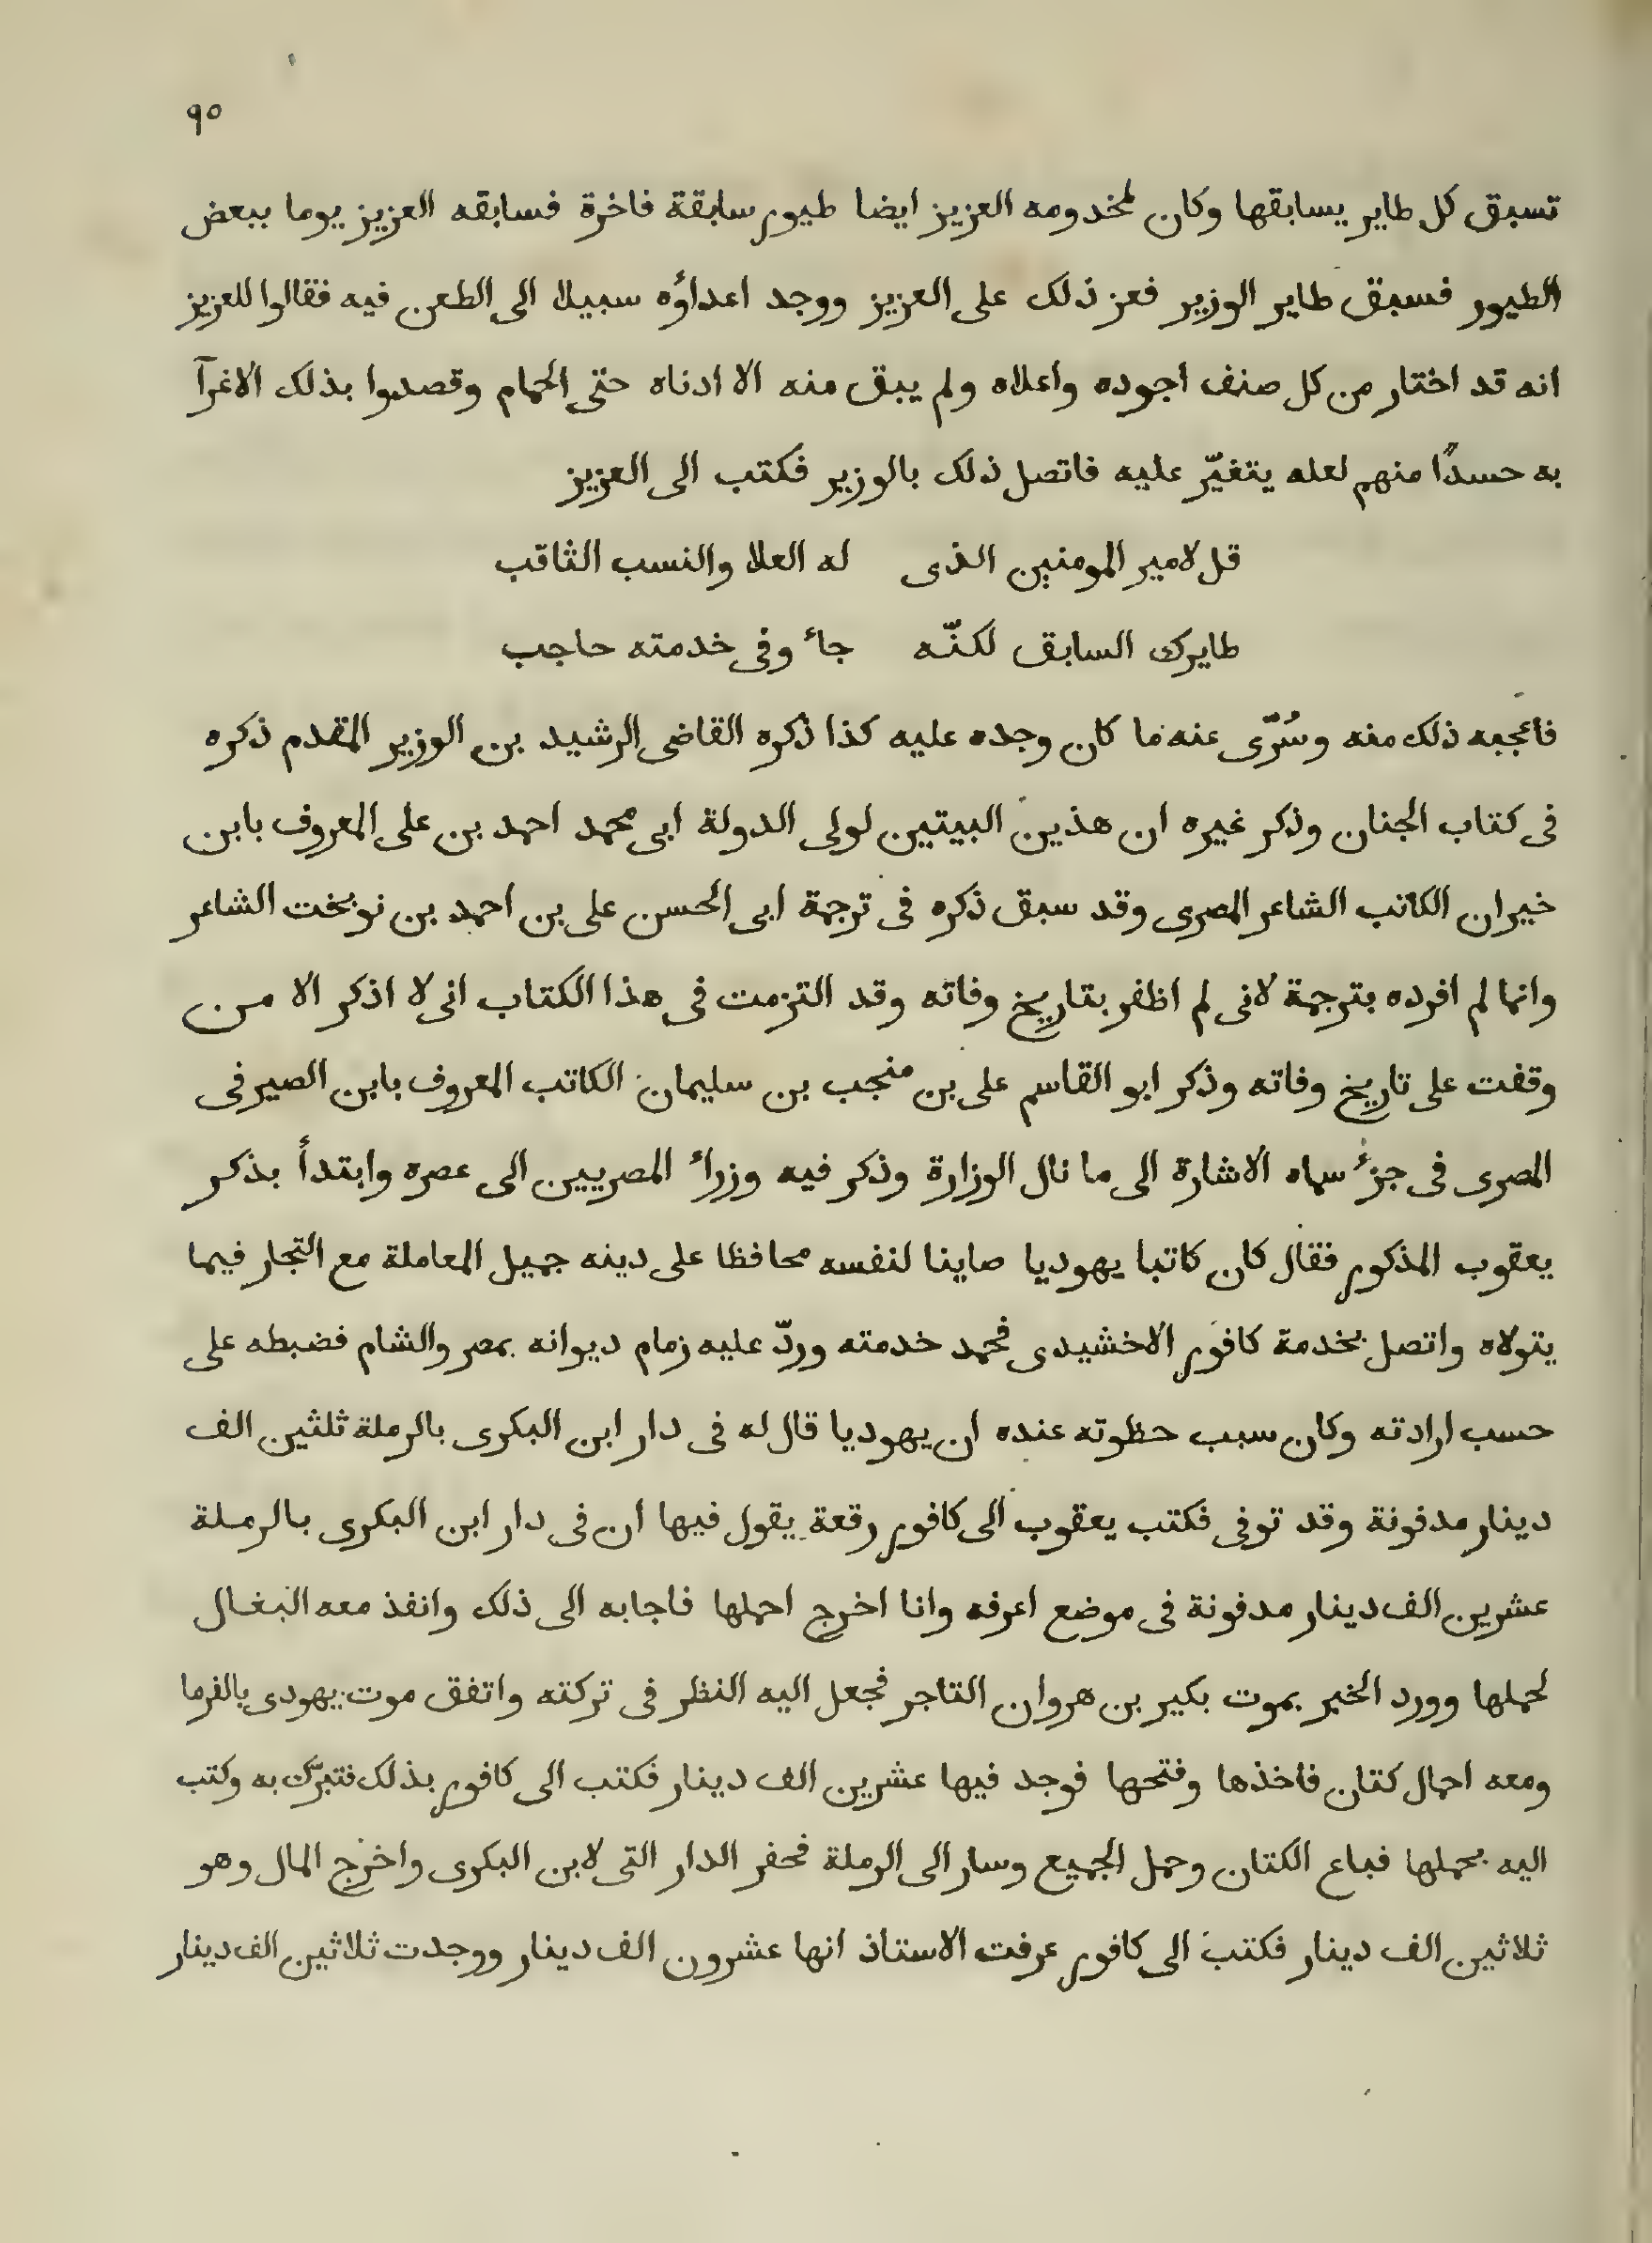 ٩٥
تسبق كل طاير يسابقها وكان لمخدومه العزيز ايضا طيور سابقة فاخرة فسابقه العزيز يوما ببعض
الطيور فسبق طاير الوزير فعز ذلك على العزيز ووجد اعداؤه سبيلا الى الطعن فيه فقالوا للعزيز
انه قد اختار من كل صنف اجوده واعلاه ولم يبق منه الا ادناه حتى الحمام وقصدوا بذلك الاغرآ
به حسدًا منهم لعله يتغيّر عليه فاتصل ذلك بالوزير فكتب الى العزيز
قل لامير المومنين الذى له العلا والنسب الثاقب
طايرك السابق لكنّه جاء وفى خدمته حاجب
فاعجبه ذلك منه وسُرّى عنه ما كان وجده عليه كذا ذكره القاضى الرشيد بن الوزير المقدم ذكره
فى كتاب الجنان وذكر غيره ان هذين البيتين لولى الدولة ابى محمد احمد بن على المعروف بابن
خيران الكاتب الشاعر المصرى وقد سبق ذكره فى ترجمة ابى الحسن على بن احمد بن نوبخت الشاعر
وانما لم افرده بترجمة لانى لم اظفر بتاريخ وفاته وقد التزمت فى هذا الكتاب انى لا اذكر الا من
وقفت على تاريخ وفاته وذكر ابو القاسم على بن منجب بن سليمان الكاتب المعروف بابن الصيرفى
المصرى فى جزء سماه الاشارة الى ما نال الوزارة وذكر فيه وزراء المصريين الى عصره وابتدأ بذكر
يعقوب المذكور فقال كان كاتبا يهوديا صاينا لنفسه محافظا على دينه جميل المعاملة مع التجار فيما
يتولاه واتصل بخدمة كافور الاخشيدى فحمد خدمته وردّ عليه زمام ديوانه بمصر والشام فضبطه على
حسب ارادته وكان سبب حظوته عنده ان يهوديا قال له فى دار ابن البكرى بالرملة ثلثين الف
دينار مدفونة وقد توفى فكتب يعقوب الى كافور رقعة يقول فيها ان فى دار ابن البكرى بالرملة
عشرين الف دينار مدفونة فى موضع اعرفه وانا اخرج احملها فاجابه الى ذلك وانفذ معه البغال
لحملها وورد الخبر بموت بكير بن هروان التاجر فجعل اليه النظر فى تركته واتفق موت يهودى بالفرما
ومعه احمال كتان فاخذها وفتحها فوجد فيها عشرين الف دينار فكتب الى كافور بذلك فتبرّك به وكتب
اليه بحملها فباع الكتان وحمل الجميع وسار الى الرملة فحفر الدار التى لابن البكرى واخرج المال وهو
ثلاثين الف دينار فكتب الى كافور عرفت الاستاذ انها عشرون الف دينار ووجدت ثلاثين الف دينار